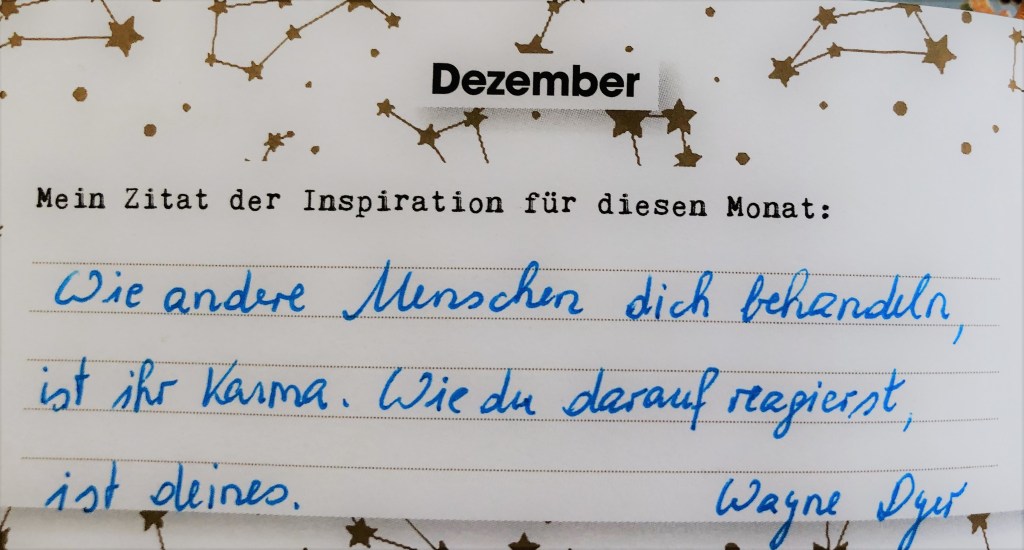 Dezember
Mein Zitat der Inspiration für diesen Monat:
Wie andere Menschen dich behandeln,
ist ihr Karma. Wie du darauf reagierst,
ist deines. Wayne Dyer